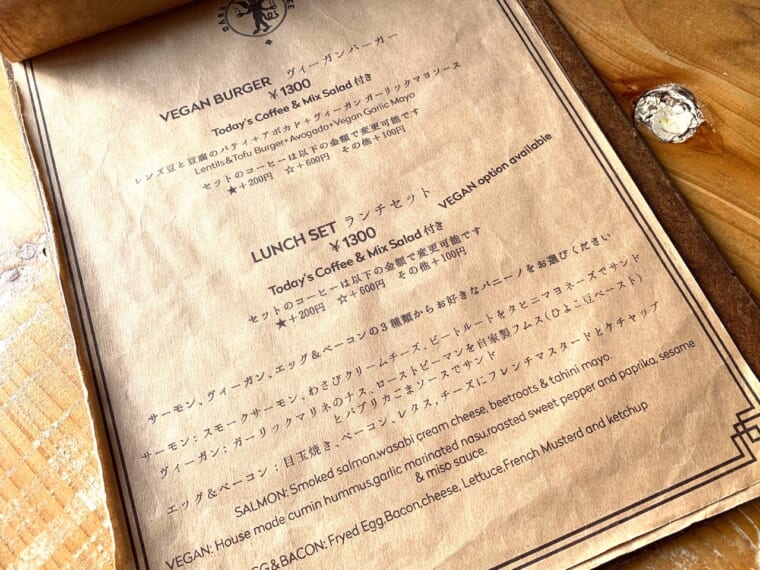 VEGAN BURGER ヴィーガンバーガー
¥1300
Today's Coffee & Mix Salad 付き
レンズ豆と豆腐のパティ+アボカド+ヴィーガン ガーリックマヨソース
Lentils&Tofu Burger+Avogado+Vegan Garlic Mayo
セットのコーヒーは以下の金額で変更可能です
★+200円 ☆+600円 その他+100円
LUNCH SET ランチセット VEGAN option available
¥1300
Today's Coffee & Mix Salad 付き
セットのコーヒーは以下の金額で変更可能です
★+200円 ☆+600円 その他+100円
サーモン、ヴィーガン、エッグ&ベーコンの3種類からお好きなパニーノをお選びください
サーモン:スモークサーモン、わさびクリームチーズ、ビートルートをタヒニマヨネーズでサンド
ヴィーガン:ガーリックマリネのナス、ローストピーマンを自家製フムス(ひよこ豆ペースト)
とパプリカごまソースでサンド
エッグ&ベーコン:目玉焼き、ベーコン、レタス、チーズにフレンチマスタードとケチャップ
SALMON: Smoked salmon,wasabi cream cheese, beetroots & tahini mayo.
VEGAN: House made cumin hummus,garlic marinated nasu,roasted sweet pepper and paprika, sesame
& miso sauce.
& BACON: Fryed Egg,Bacon,cheese, Lettuce,French Musterd and ketchup